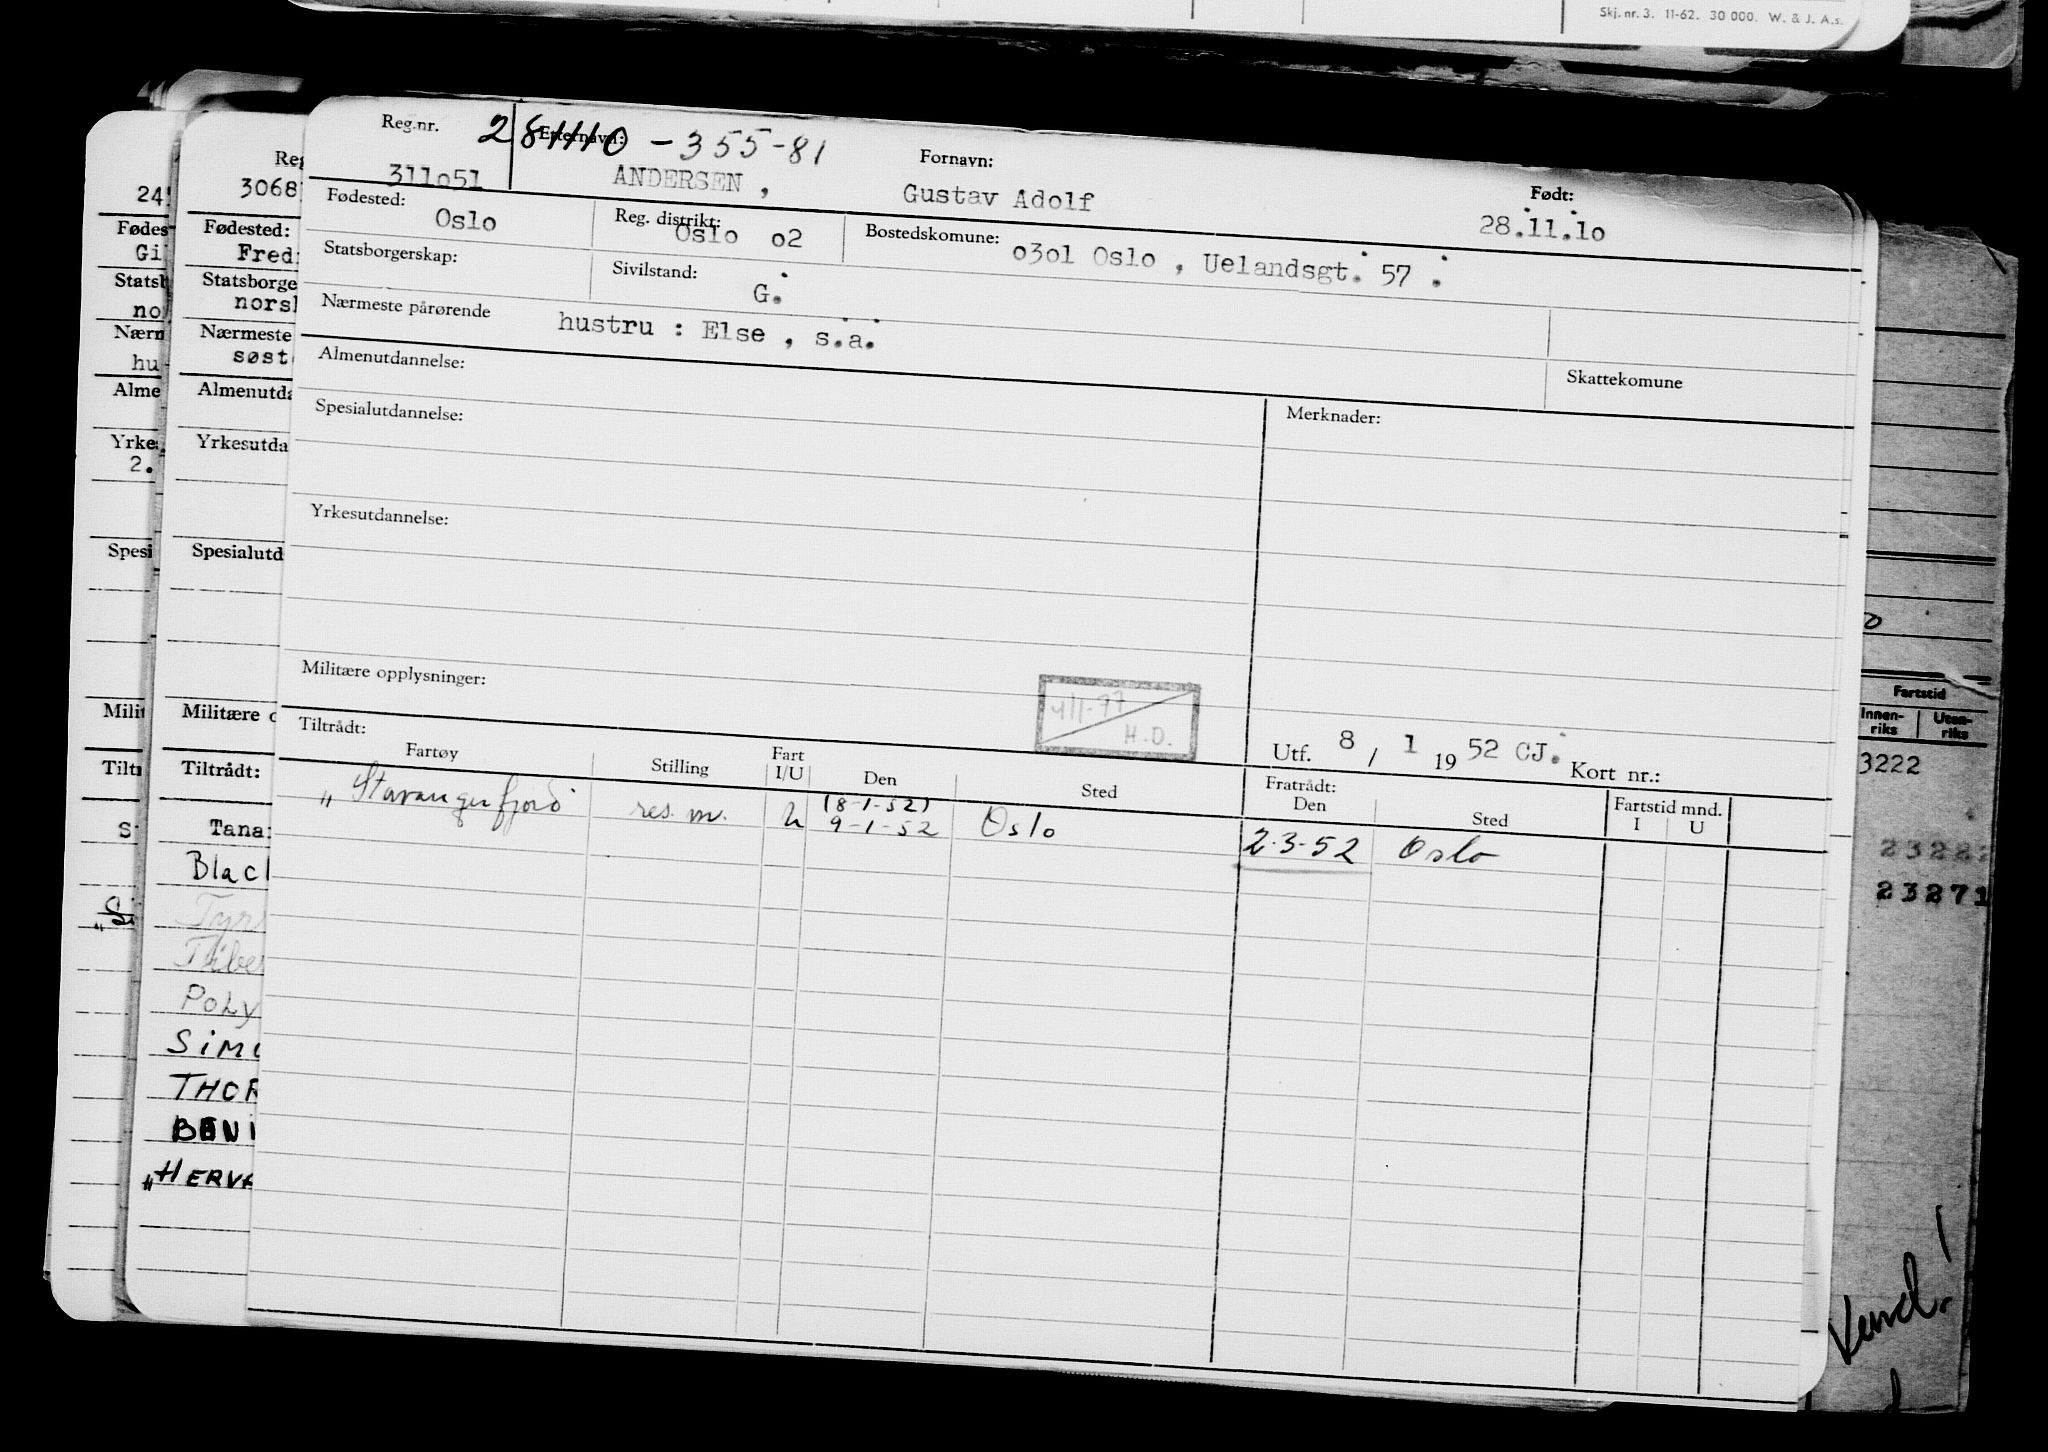 Skj. nr. 3. 11-62. 30 000. W. & J. A.s.
Reg.nr. 281110 - 355-81
Efternavn: Fornavn: Født:
311o51 ANDERSEN , Gustav Adolf 28.11.1o
Fødested: Oslo Reg. distrikt: Oslo o2 Bostedskomune: o3o1 Oslo , Uelandsgt. 57 .
Statsborgerskap: Sivilstand: G.
Nærmeste pårørende hustru : Else , s.a.
Almenutdannelse: Skattekomune
Spesialutdannelse: Merknader:
Yrkesutdannelse:
Militære opplysninger:
4/1-77
H.D.
Utf. 8 / 1 19 52 CJ. Kort nr.:
Tiltrådt: Fratrådt: Fartstid mnd.
Fartøy Stilling Fart I/U Den Sted Den Sted I U
(8-1-52)
„Stavangerfjord" res. m. U 9-1-52 Oslo 2-3-52 Oslo
Reg
24
3068
Fødes Fødested:
Gi Fred
Statsb Statsborge
no norsk
Nærm Nærmeste
hu søst
Alme Almenutda
Yrke Yrkesutda
2.
Spesi Spesialutd
Milit Militære o
Tilt Tiltrådt:
S Tana
Black
Si
Tyr
Tiber
POLY
SIMO
THOR
BENI
„HERVA
Fartstid
Innen-riks Uten-riks
3222
2328
23271
Kund!